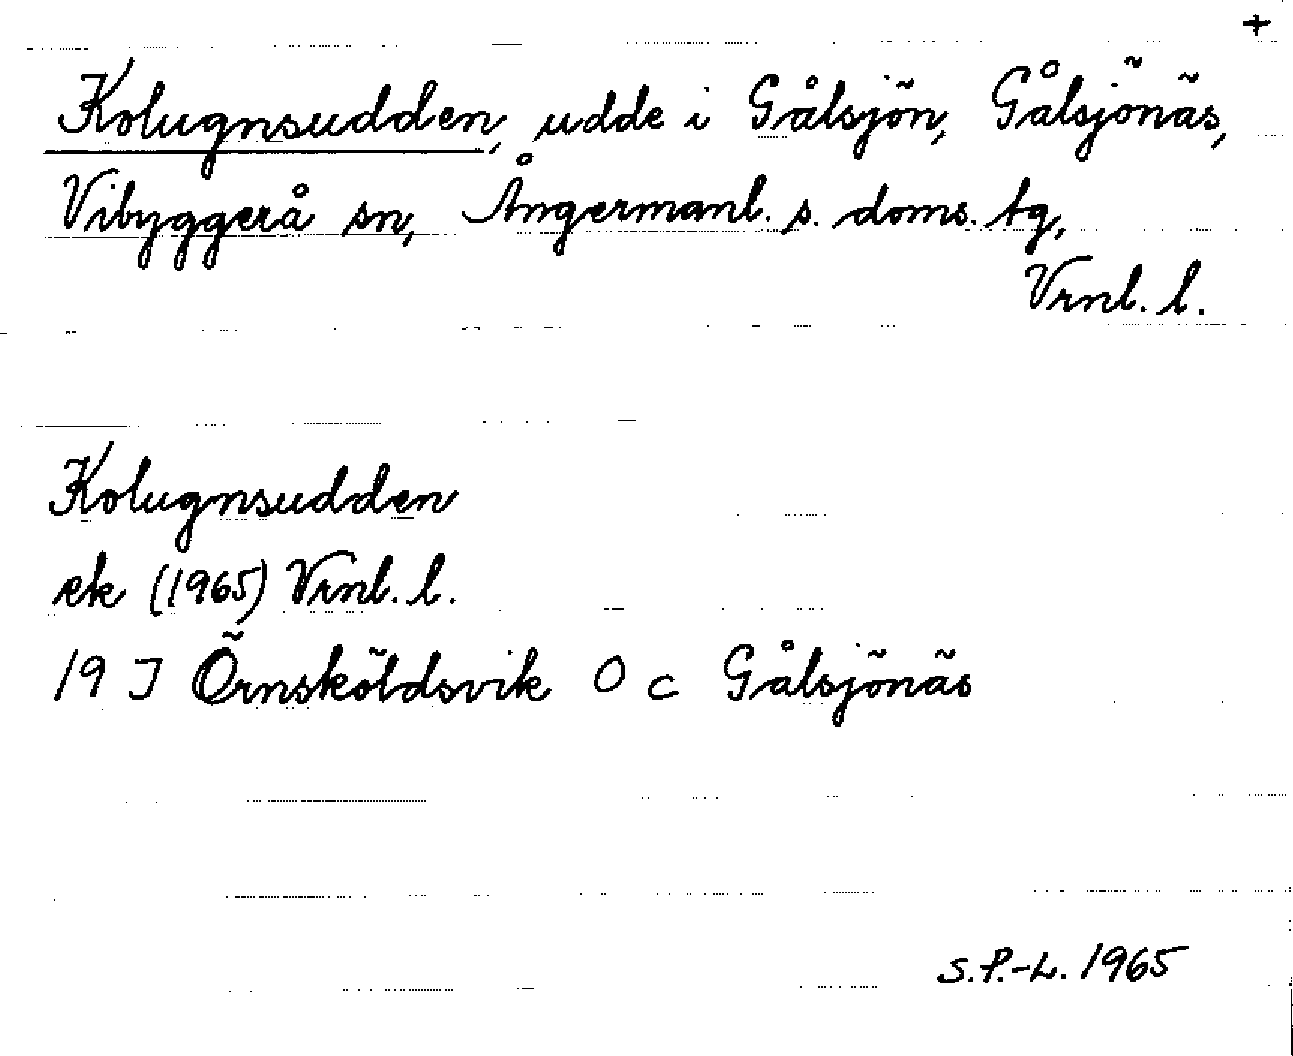 +
Kolugnsudden, udde i Gålsjön, Gålsjönäs,
Vibyggerå sn, Ångermanl. s. doms. tg,
Vrnl. l.
Kolugnsudden
ek (1965) Vrnl. l.
19 J Örnsköldsvik O c Gålsjönäs
S.P.-L. 1965